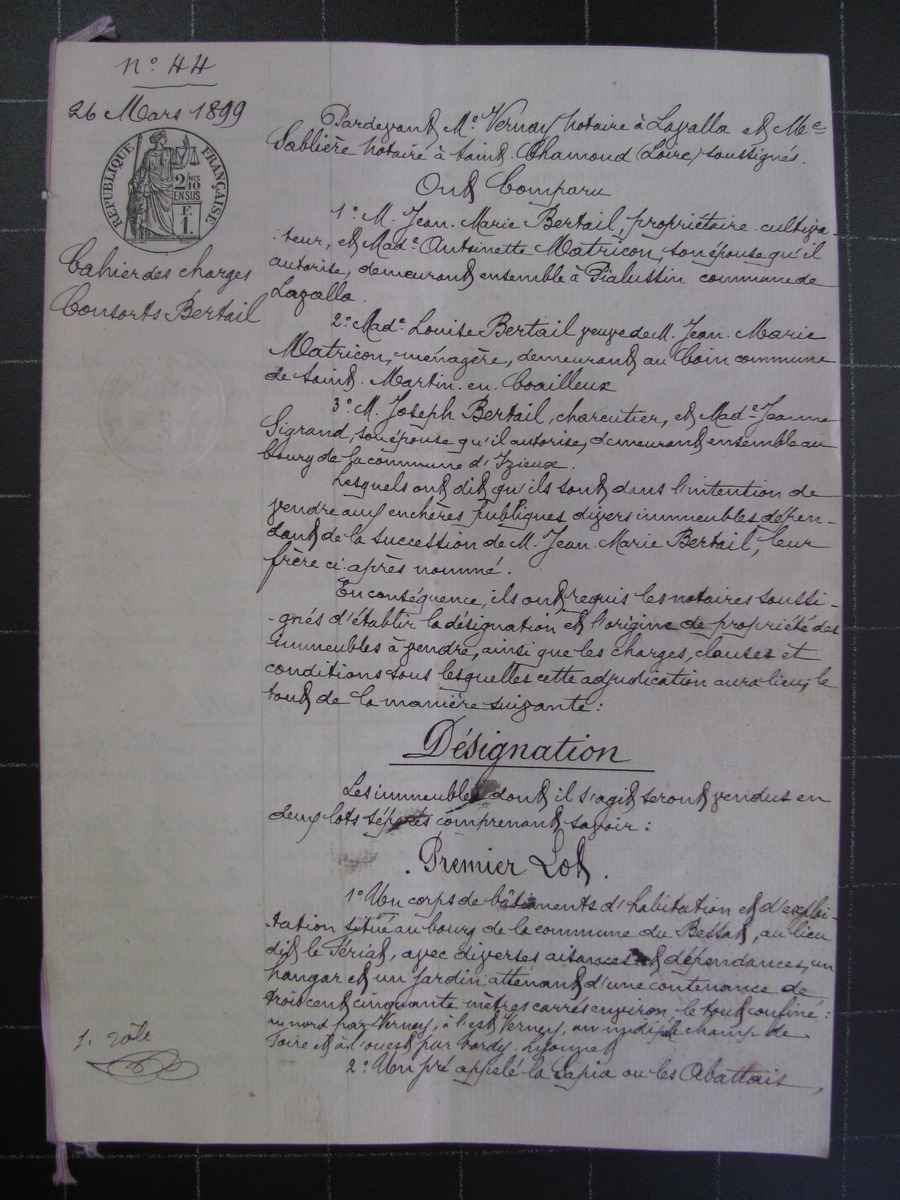 n° 44
26 Mars 1899
RÉPUBLIQUE FRANÇAISE
2/10
EN SUS
F.
1.
Cahier des charges
Consorts Bertail
Pardevant Me Vernay notaire à Lavalla et Me
Sablière notaire à Saint-Chamond (Loire) soussignés.
Ont Comparu
1° M. Jean-Marie Bertail, propriétaire-cultiva-
-teur, et Made Antoinette Matricon, son épouse qu'il
autorise, demeurant ensemble à Pialussin commune de
Lavalla.
2° Made Louise Bertail veuve de M. Jean-Marie
Matricon, ménagère, demeurant au Coin commune
de Saint-Martin-en-Coailleux
3° M. Joseph Bertail, charcutier, et Made Jeanne
Sigrand, son épouse qu'il autorise, demeurant ensemble au
bourg de la commune d'Izieux.
Lesquels ont dit qu'ils sont dans l'intention de
vendre aux enchères publiques divers immeubles dépen-
dant de la succession de M. Jean-Marie Bertail, leur
frère ci-après nommé.
En conséquence, ils ont requis les notaires soussi-
-gnés d'établir la désignation et l'origine de propriété des
immeubles à vendre, ainsi que les charges, clauses et
conditions sous lesquelles cette adjudication aura lieu, le
tout de la manière suivante :
Désignation
Les immeubles dont il s'agit seront vendus en
deux lots séparés comprenant savoir :
. Premier Lot .
1° Un corps de bâtiments d'habitation et d'exploi-
tation situé au bourg de la commune du Bessat, au lieu
dit le Fériat, avec diverses aisances et dépendances, un
hangar et un jardin attenant d'une contenance de
trois cent cinquante mètres carrés environ, le tout confiné :
au nord par Verney, à l'est Verney, au midi le champ de
foire et à l'ouest par Tardy
2° Un pré appelé la Sapia ou les Abattais,
1. rôle